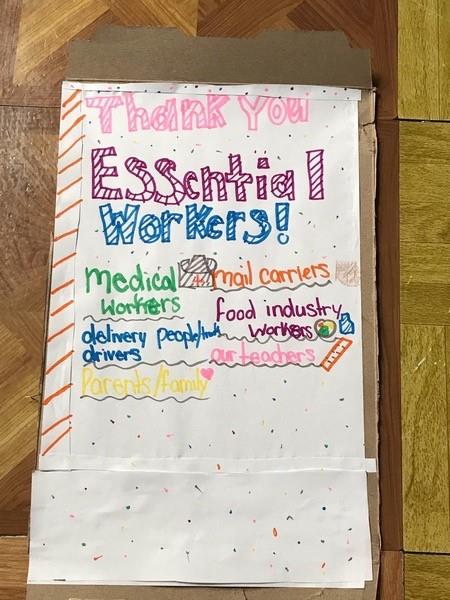 Thank You
Essential
Workers!
Medical
workers
mail carriers
food industry
workers
delivery people/truck
drivers
our teachers
Parents/family